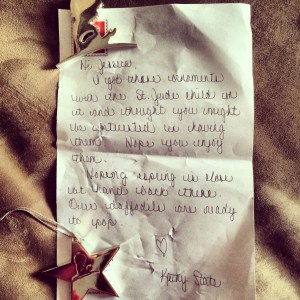 Hi Jessica,
I got these ornaments
with the St. Jude child on
it and thought you might
be interested in having
them. Hope you enjoy
them.
Hoping spring is close
at hand back there.
Our daffodils are ready
to pop.
Kathy